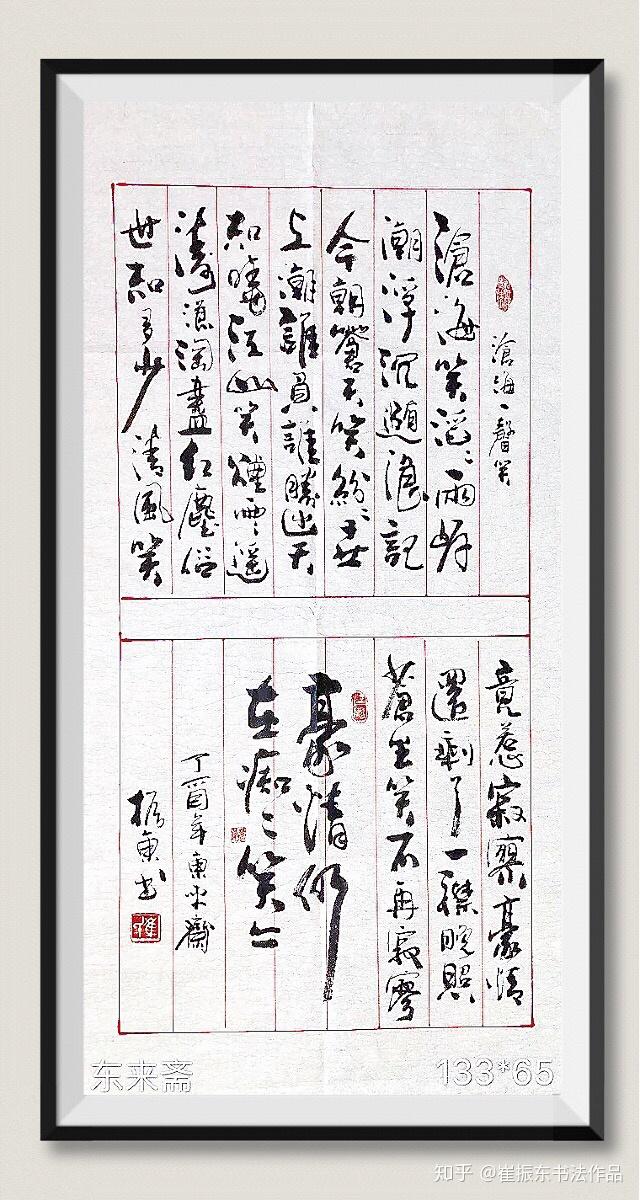 滄海一聲笑
滄海笑滔々兩岸
潮浮沉隨浪記
今朝蒼天笑紛々世
上潮誰負誰勝出天
知曉江山笑煙雨遙
濤浪淘盡紅塵俗
世知多少清風笑
竟惹寂寥豪情
還剩了一襟晚照
蒼生笑不再寂寥
豪情仍
在痴々笑々
丁酉年東來齋
振東书
东来斋
133*65
知乎 @崔振东书法作品